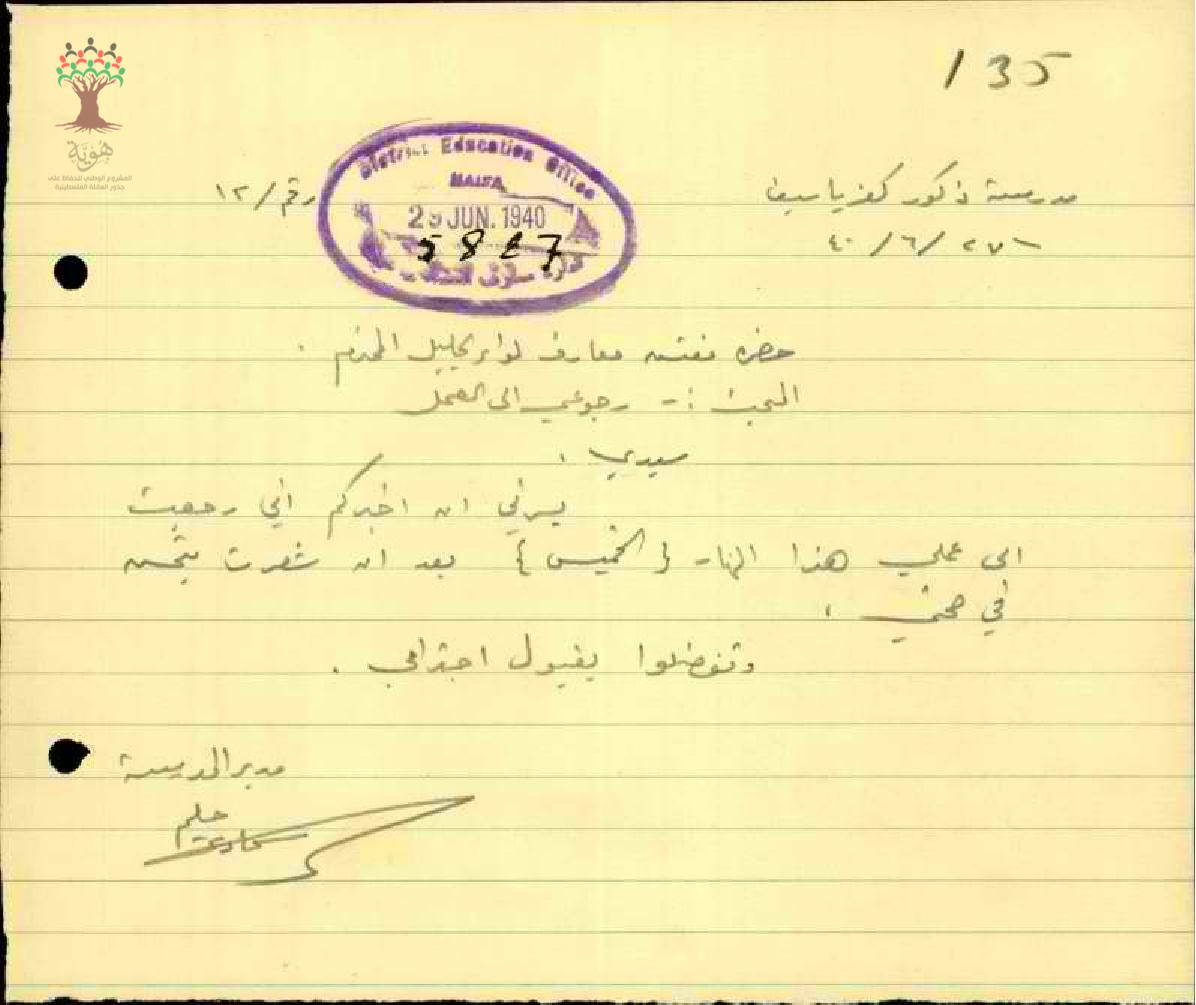 135
هوية
المشروع الوطني للحفاظ على
جذور العائلة الفلسطينية
District Education Office
HAIFA
29 JUN. 1940
5827
مدرسة ذكور كفرياسيف
رقم / ١٢
٢٧ / ٦ / ٤٠
حضرة مفتش معارف لواء الجليل المحترم .
المبحث :- رجوعي الى العمل
سيدي ،
يسرني ان اخبركم اني رجعت
الى عملي هذا النهار { الخميس } بعد ان شعرت بتحسن
في صحتي .
وتفضلوا بقبول احترامي .
مدير المدرسة
حليم